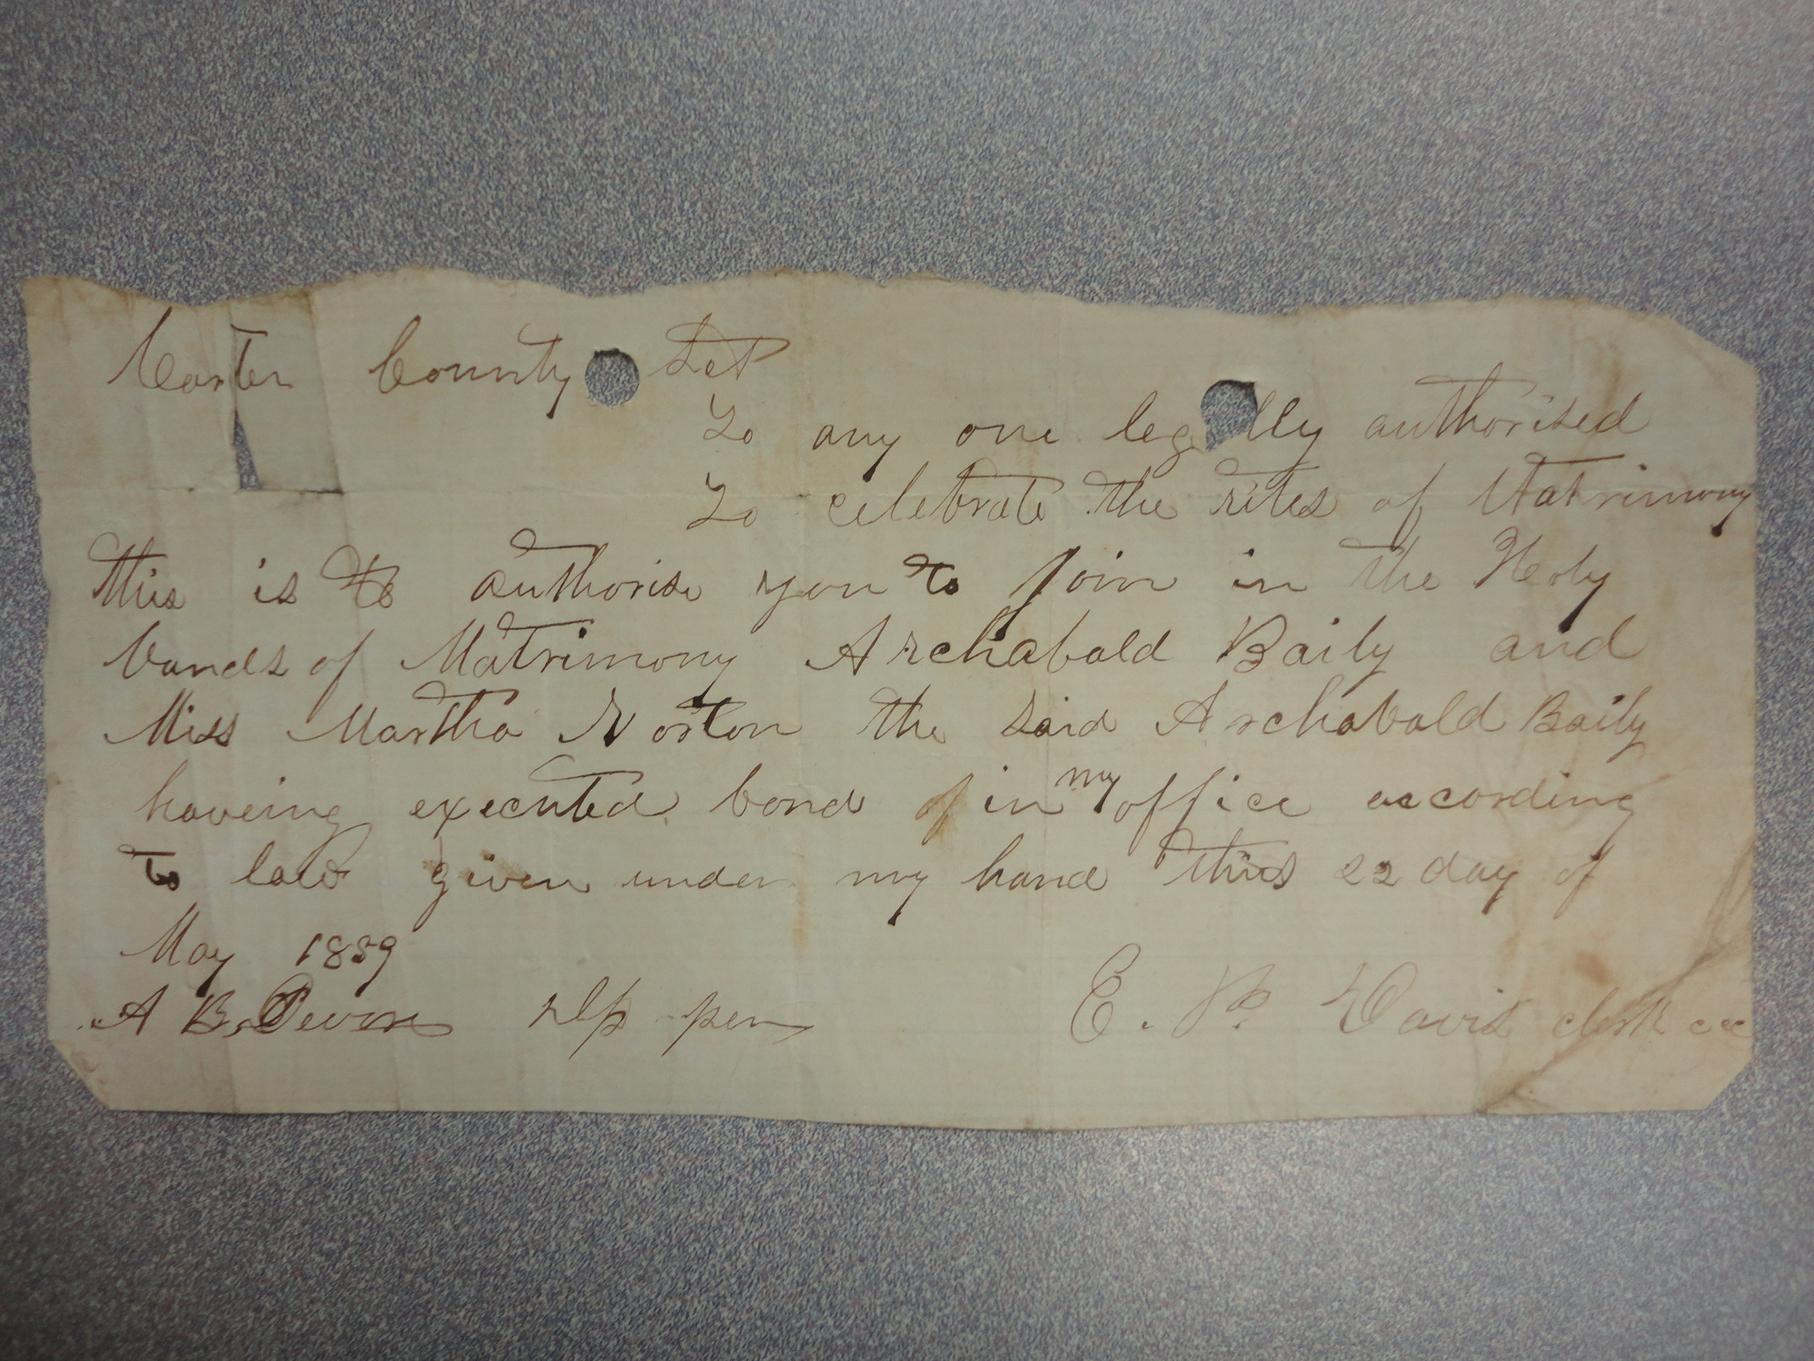 Carter County Sct
To any one legally authorised
To celebrate the rites of Matrimony
this is to authorise you to join in the Holy
bands of Matrimony Archabald Baily and
Miss Martha Norton the said Archabald Baily
haveing executed bond in my office according
to law given under my hand this 22 day of
May 1859
A B. dp per E. Davis clerk cc